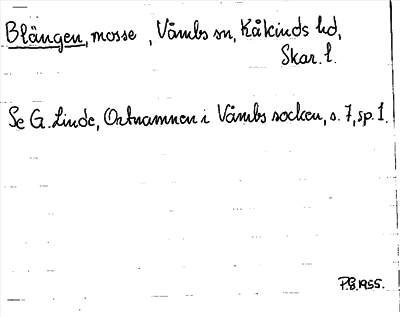 Blängen, mosse , Våmbs sn, Kåkinds hd,
Skar. l.
Se G. Linde, Ortnamnen i Våmbs socken, s. 7, sp. 1.
P.G. 1955.